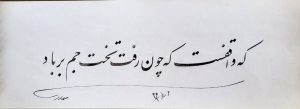 که واقفست که چون رفت تخت جم بر باد